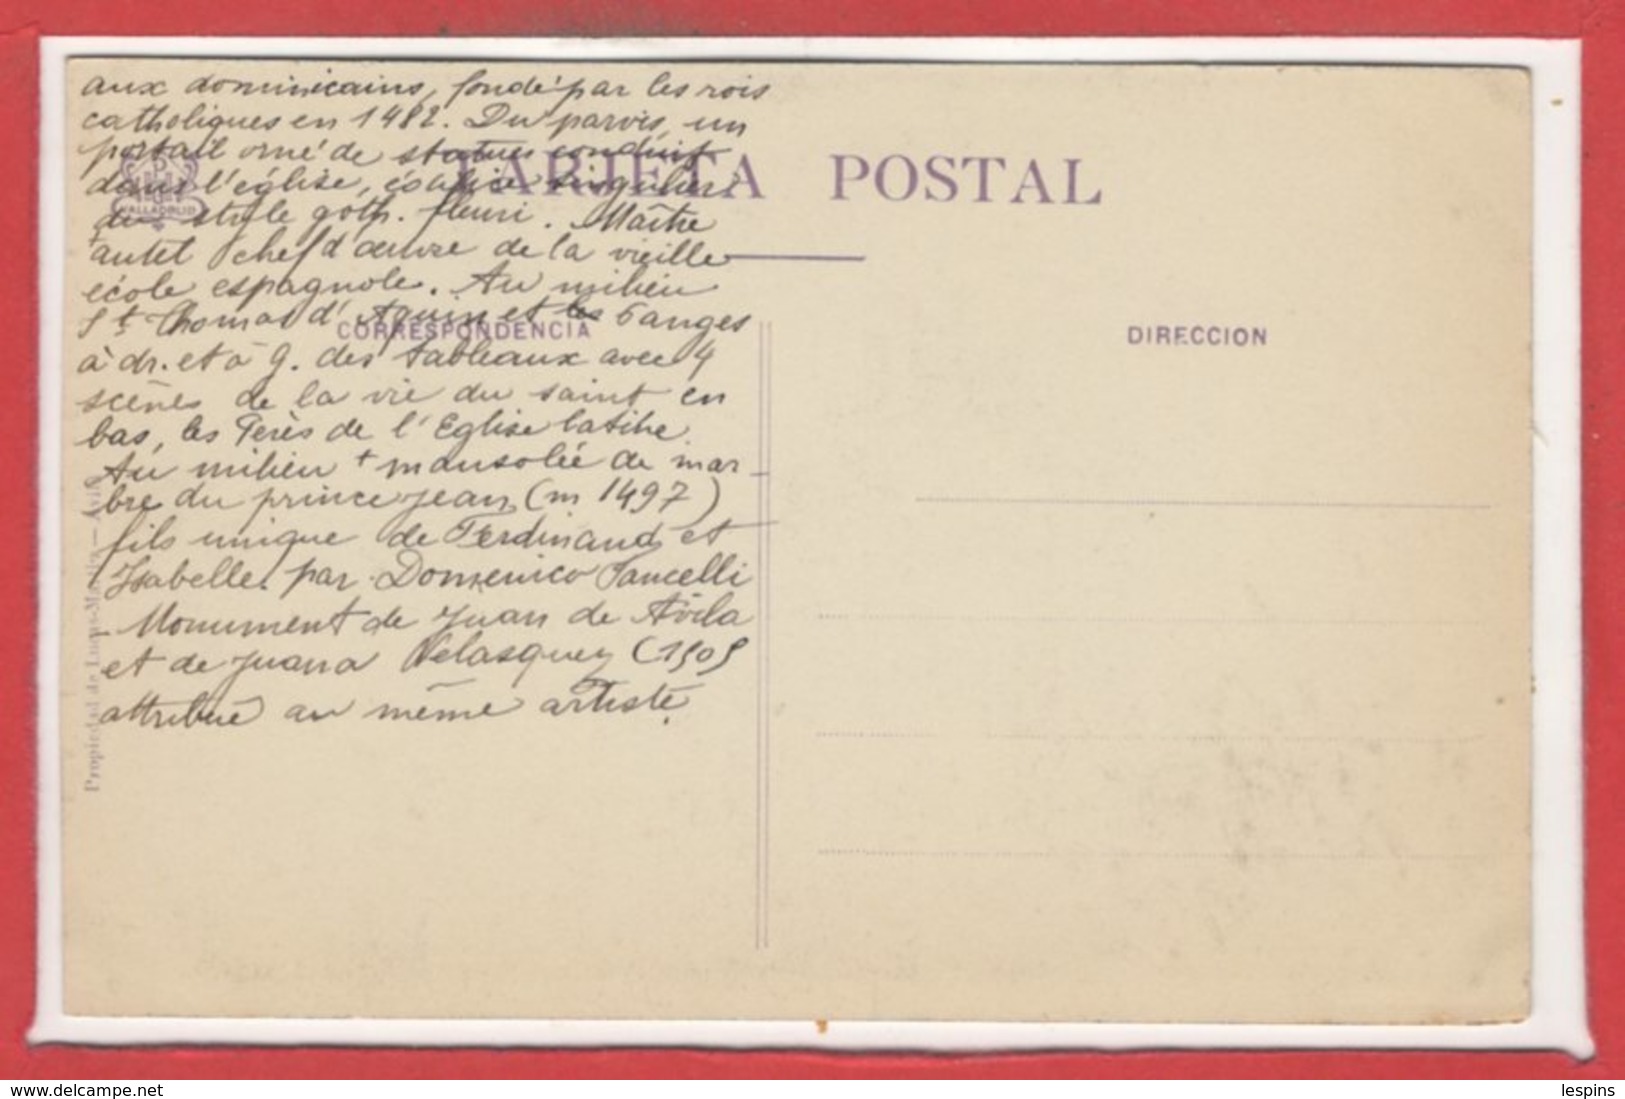 aux dominicains, fondé par les rois
catholiques en 1482. Du parvis, un
portail orné de statues conduit
dans l'église, édifice singulier
de style goth. fleuri. Maître
autel chef d'œuvre de la vieille
école espagnole. Au milieu
St. Thomas d'Aquin et les 6 anges
à dr. et à g. des tableaux avec 4
scènes de la vie du saint en
bas, les Pères de l'Eglise latine.
Au milieu + mausolée de mar-
bre du prince Jean (m 1497)
fils unique de Ferdinand et
Isabelle. par Domenico Fancelli
- Monument de Juan de Avila
et de Juana Velasquez (1505
attribué au même artiste.
TARJETA POSTAL
VALLADOLID
CORRESPONDENCIA
DIRECCION
Propiedad de Lucas-Martín.—Avila
delcampe.net
lespins